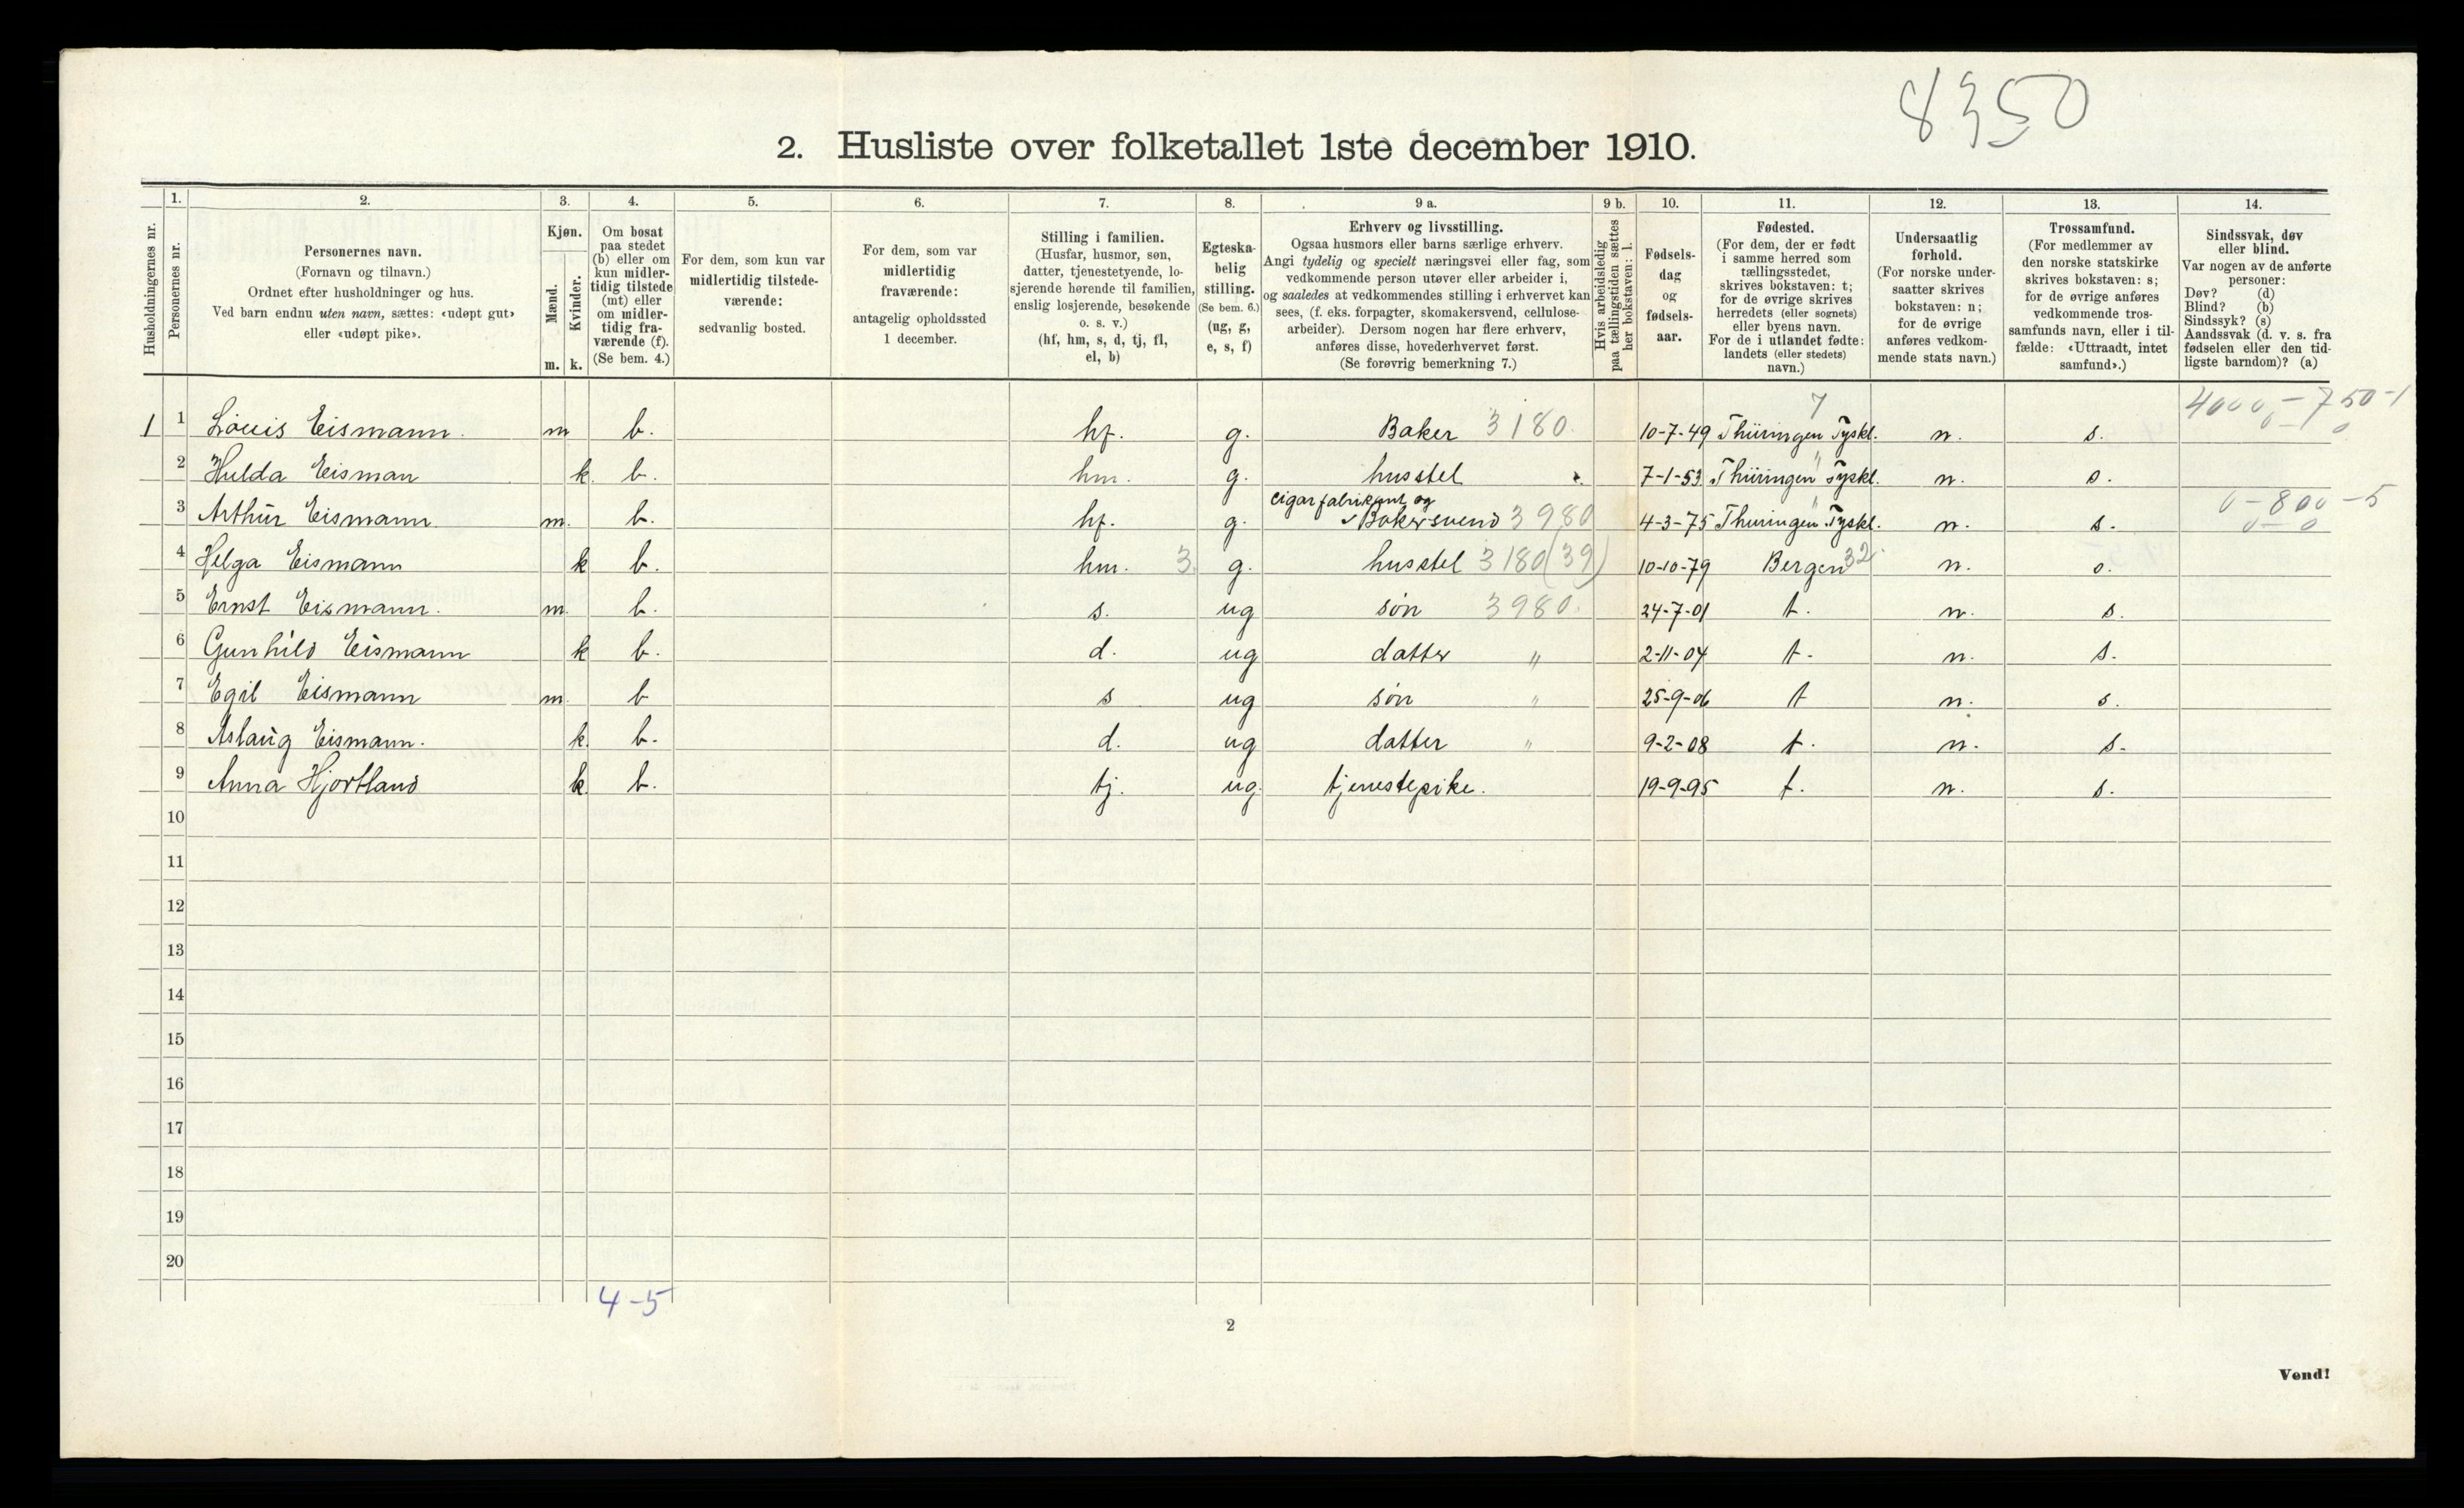 8350
2. Husliste over folketallet 1ste december 1910.
Husholdningernes nr.
1.
Personernes nr.
2.
Personernes navn.
(Fornavn og tilnavn.)
Ordnet efter husholdninger og hus.
Ved barn endnu uten navn, sættes: «udøpt gut»
eller «udøpt pike».
3.
Kjøn.
Mænd. Kvinder.
m. k.
4.
Om bosat
paa stedet
(b) eller om
kun midler-
tidig tilstede
(mt) eller
om midler-
tidig fra-
værende (f).
(Se bem. 4.)
5.
For dem, som kun var
midlertidig tilstede-
værende:
sedvanlig bosted.
6.
For dem, som var
midlertidig
fraværende:
antagelig opholdssted
1 december.
7.
Stilling i familien.
(Husfar, husmor, søn,
datter, tjenestetyende, lo-
sjerende hørende til familien,
enslig losjerende, besøkende
o. s. v.)
(hf, hm, s, d, tj, fl,
el, b)
8.
Egteska-
belig
stilling.
(Se bem. 6.)
(ug, g,
e, s, f)
9 a.
Erhverv og livsstilling.
Ogsaa husmors eller barns særlige erhverv.
Angi tydelig og specielt næringsvei eller fag, som
vedkommende person utøver eller arbeider i,
og saaledes at vedkommendes stilling i erhvervet kan
sees, (f. eks. forpagter, skomakersvend, cellulose-
arbeider). Dersom nogen har flere erhverv,
anføres disse, hovederhvervet først.
(Se forøvrig bemerkning 7.)
9 b.
Hvis arbeidsledig
paa tællingstiden sættes
her bokstaven: l.
10.
Fødsels-
dag
og
fødsels-
aar.
11.
Fødested.
(For dem, der er født
i samme herred som
tællingsstedet,
skrives bokstaven: t;
for de øvrige skrives
herredets (eller sognets)
eller byens navn.
For de i utlandet fødte:
landets (eller stedets)
navn.)
12.
Undersaatlig
forhold.
(For norske under-
saatter skrives
bokstaven: n;
for de øvrige
anføres vedkom-
mende stats navn.)
13.
Trossamfund.
(For medlemmer av
den norske statskirke
skrives bokstaven: s;
for de øvrige anføres
vedkommende tros-
samfunds navn, eller i til-
fælde: «Uttraadt, intet
samfund».)
14.
Sindssvak, døv
eller blind.
Var nogen av de anførte
personer:
Døv? (d)
Blind? (b)
Sindssyk? (s)
Aandssvak (d. v. s. fra
fødselen eller den tid-
ligste barndom)? (a)
7 4000-750-1
1 1 Louis Eismann. m b. hf. g. Baker 3180. 10-7-49 Thüringen Tyskl. n. s. 0-0
2 Hulda Eisman k. b. hm. g. husstel 7-1-53 Thüringen Tyskl. n. s.
cigarfabrikant og 0-800-5
3 Arthur Eismann m. b. hf. g. Bakersvend 3980 4-3-75 Thuringen Tyskl. n. s. 0-0
4 Helga Eismann k b. hm. 3. g. husstel 3180(39) 10-10-79 Bergen 32 n. s.
5 Ernst Eismann. m. b. s. ug søn 3980. 24-7-01 t. n. s.
6 Gunhild Eismann k b. d. ug datter " 2-11-04 t. n. s.
7 Egil Eismann m. b s ug søn " 25-9-06 t n. s.
8 Aslaug Eismann. k. b. d. ug datter " 9-2-08 t. n. s.
9 Anna Hjortland k. b. tj. ug. tjenestepike. 19-9-95 t. n. s.
10
11
12
13
14
15
16
17
18
19
20
4-5
2
Vend!